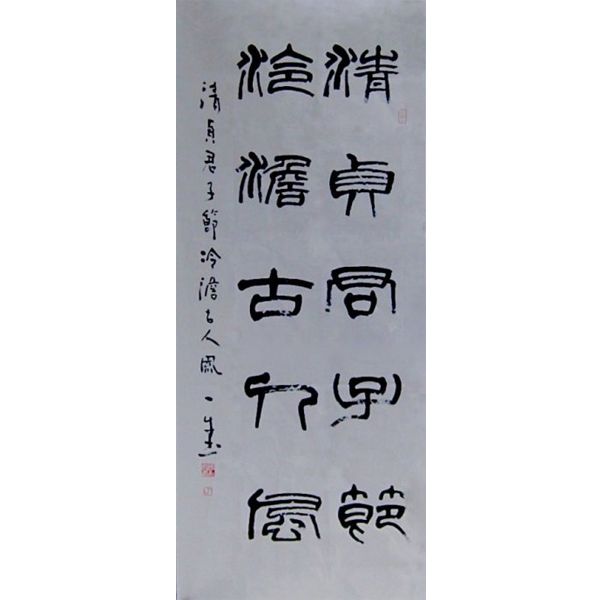 清貞君子節
冷澹古人風
清貞君子節冷澹古人風